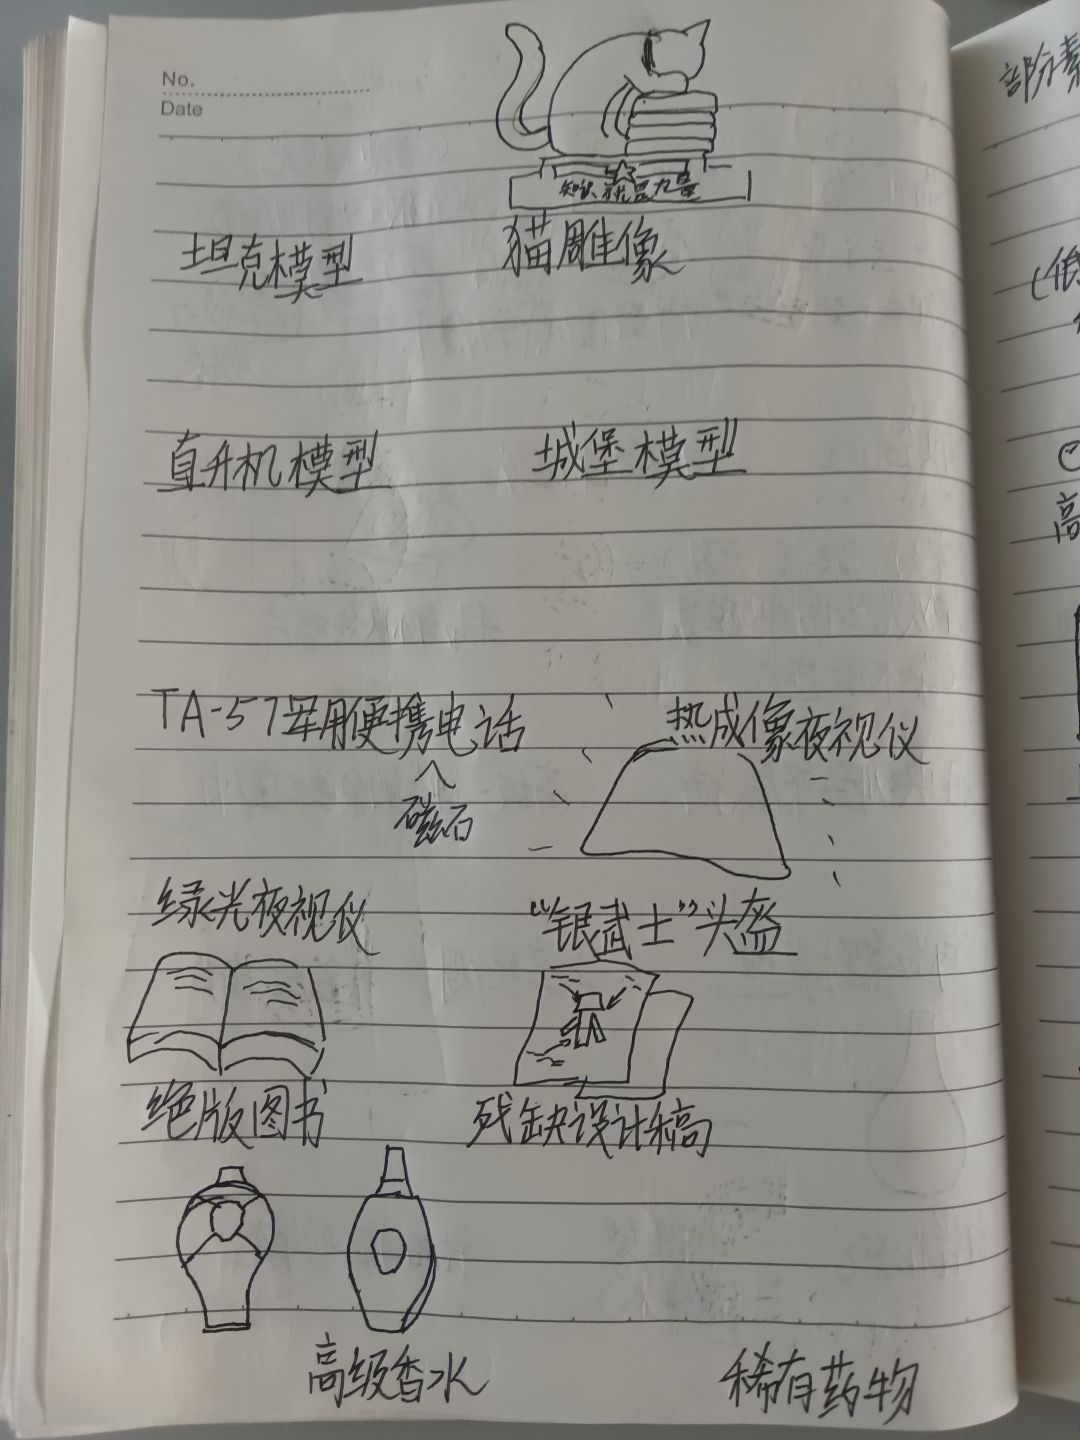 No.
Date
知识就是力量
坦克模型
猫雕像
直升机模型
城堡模型
TA-57军用便携电话
磁石
热成像夜视仪
绿光夜视仪
“银武士”头盔
绝版图书
残缺设计稿
高级香水
稀有药物
部分素
(低
高